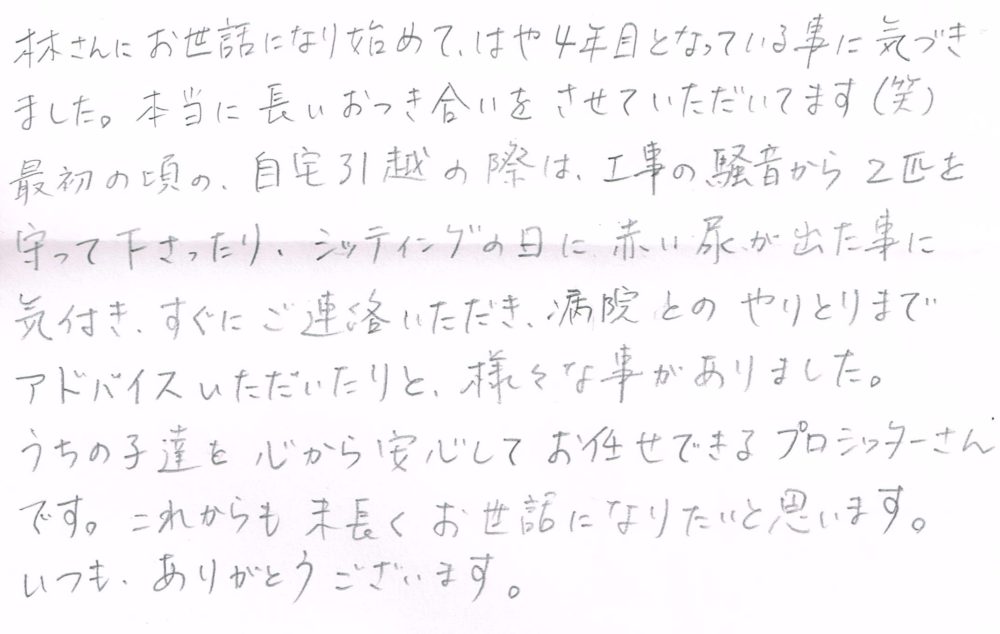 林さんにお世話になり始めて、はや4年目となっている事に気づき
ました。本当に長いおつき合いをさせていただいてます(笑)
最初の頃の、自宅引越の際は、工事の騒音から2匹を
守って下さったり、シッティングの日に赤い尿が出た事に
気付き、すぐにご連絡いただき、病院とのやりとりまで
アドバイスいただいたりと、様々な事がありました。
うちの子達を心から安心してお任せできるプロシッターさん
です。これからも末長くお世話になりたいと思います。
いつも、ありがとうございます。